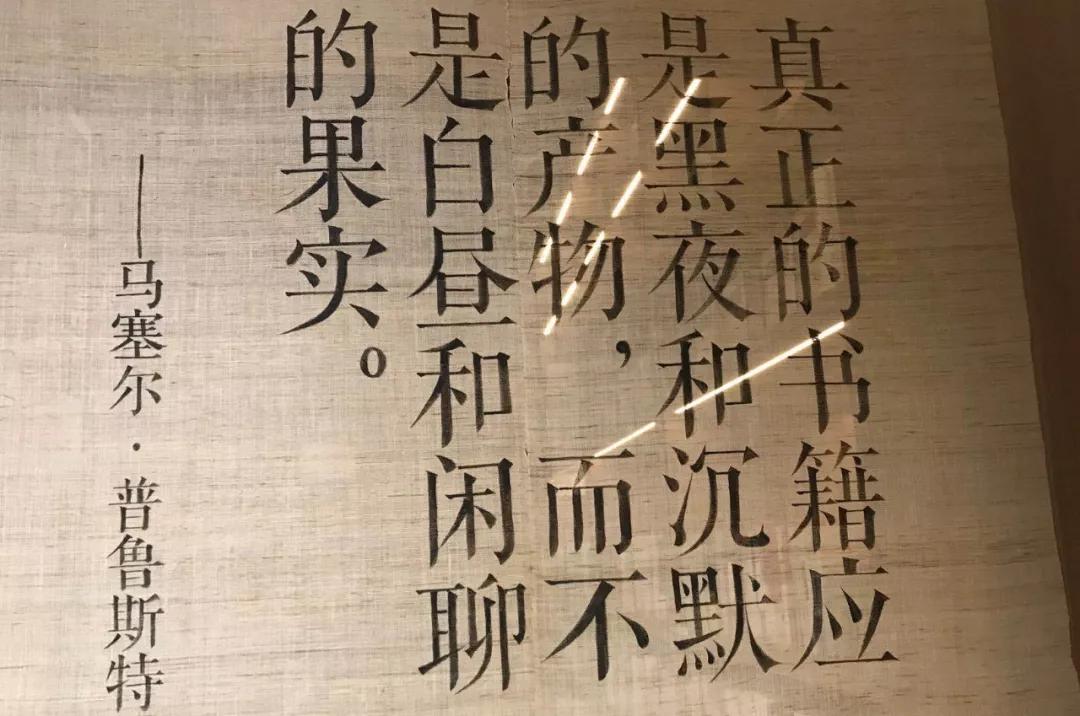 真正的书籍应
是黑夜和沉默
的产物，而不
是白昼和闲聊
的果实。
——马塞尔·普鲁斯特